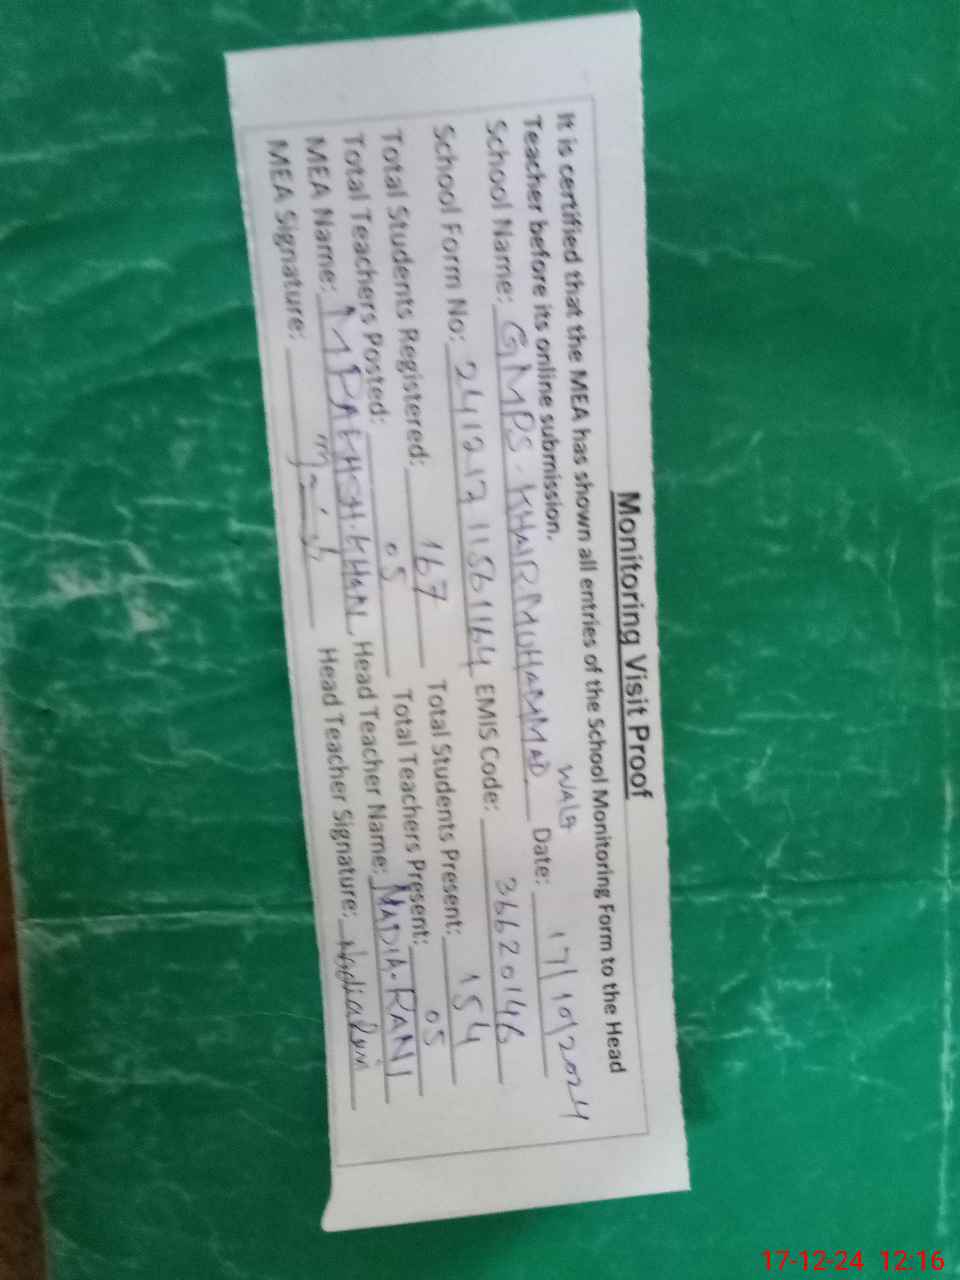 Monitoring Visit Proof
It is certified that the MEA has shown all entries of the School Monitoring Form to the Head
Teacher before its online submission.
WALA
School Name: GMPS. KHAIR MUHAMMAD Date: 17/10/2024
School Form No: 24121711561164 EMIS Code: 36620146
Total Students Registered: 167 Total Students Present: 154
Total Teachers Posted: 05 Total Teachers Present: 05
MEA Name: KHAN Head Teacher Name: NADIA.RANI
MEA Signature: Head Teacher Signature:
17-12-24 12:16